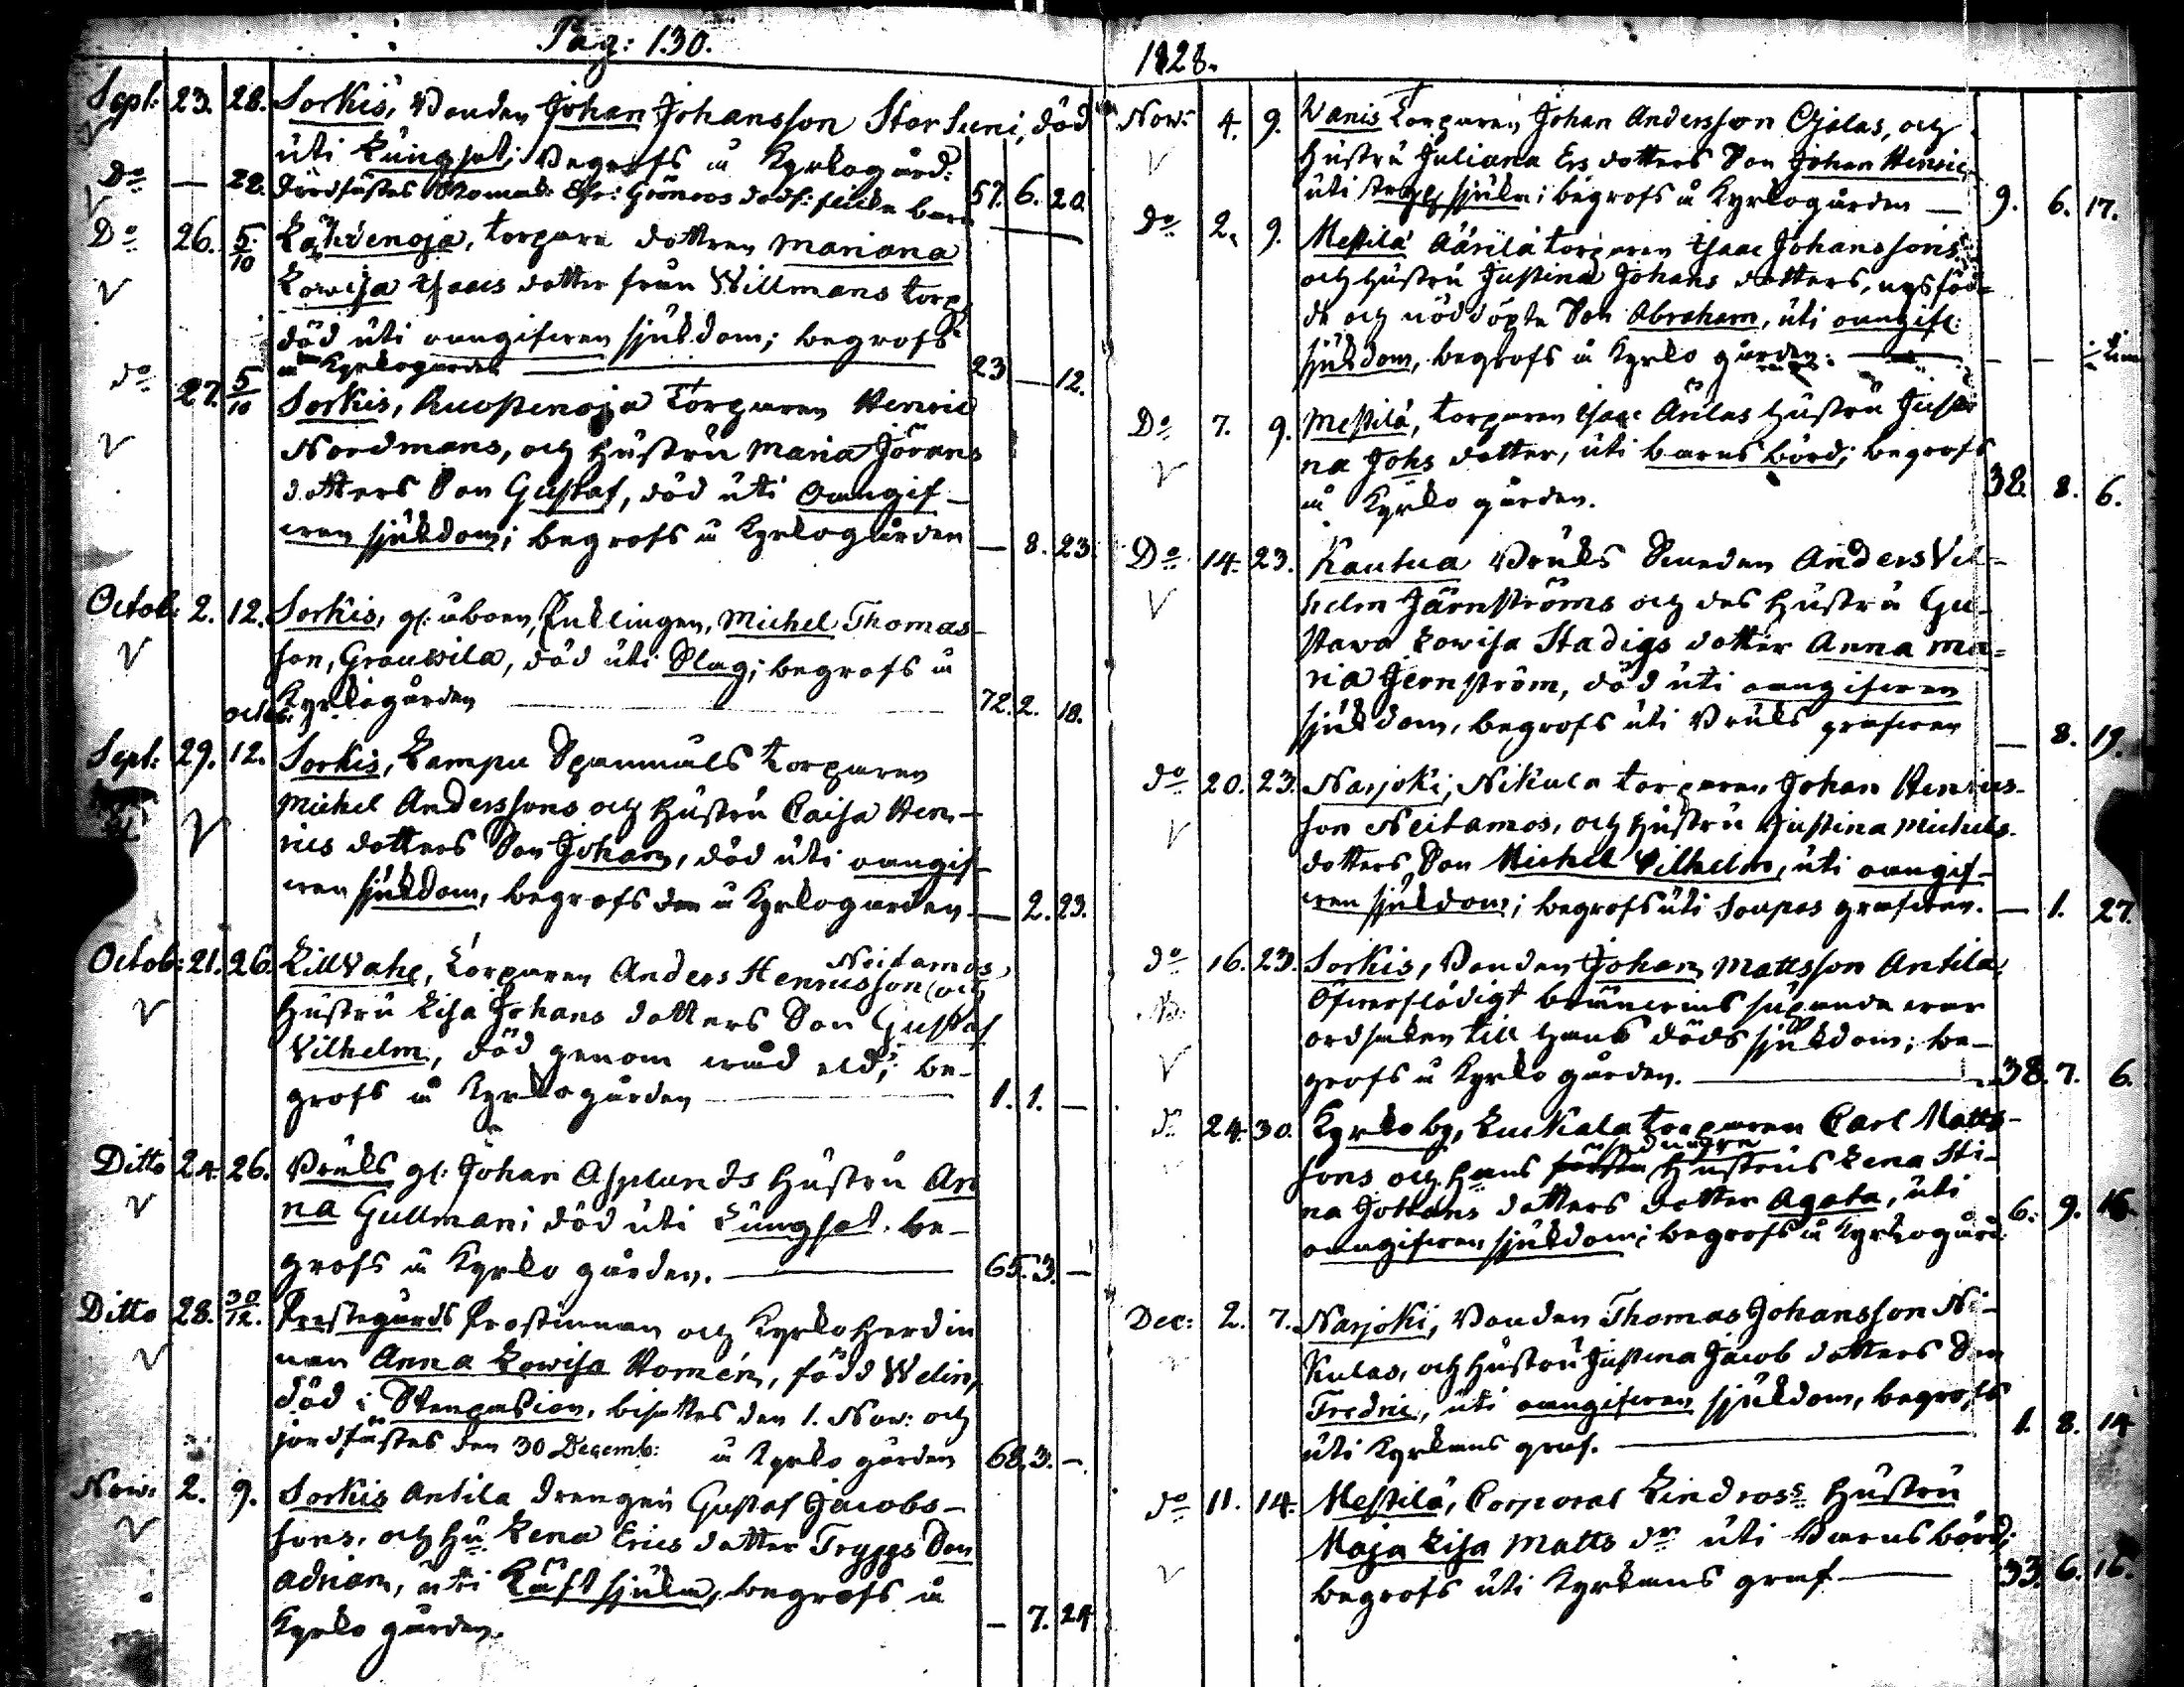 Pag: 130.
Sept: 23. 28. Sorkis, Bonden Johan Johansson Storsuni, död
uti Lungsot; begrofs å Kyrkogård: 57. 6. 20.
Do — 28. Jordfästes Mamsell Grönroos dödf: flicke barn
Do 26. 5/10 Lähdenoja, torpare dottren Mariana
Lowisa Isaacs dotter från Willmans torp,
död uti oangifwen sjukdom; begrofs
å Kyrkogården 23 — 12.
do 27. 5/10 Sorkis, Ruostenoja Torparen Henric
Nordmans, och Hustru Maria Jörans
dotters Son Gustaf, död uti oangif-
wen sjukdom; begrofs å Kyrkogården — 8. 23.
Octob: 2. 12. Sorkis, gl: åboen, Enklingen, Michel Thomas-
son, Grouwila, död uti Slag; begrofs å
Kyrkogården 72. 2. 18.
octob:
Sept: 29. 12. Sorkis, Lampu Spanmåls torparen
Michel Anderssons och Hustru Caisa Hen-
rics dotters Son Johan, död uti oangif-
wen sjukdom, begrofs den å Kyrkogården — 2. 23.
Octob: 21. 26. Lill Vahe, torparen Anders Henricsson Neitamos, och
Hustru Lisa Johans dotters Son Gustaf
Vilhelm, död genom wåd eld; be-
grofs å Kyrkogården 1. 1. —
Ditto 24. 26. Bruks gl: Johan Asplunds Hustru An
na Gullman; död uti Lungsot. be-
grofs å Kyrko gården. 65. 3. —
Ditto 28. 30/12. Prestegårds Prostinnan och Kyrkoherdin
nan Anna Lowisa Homén, född Welin,
död i Stenpasion, bisattes den 1. Now: och
jordfästes den 30 Decemb: å Kyrko gården 68. 3. —
Now: 2. 9. Sorkis Antila drengen Gustaf Jacobs-
sons, och Hu: Lena Erics dotter Tryggs Son
Adrian, uti Kufst sjuka, begrofs å
Kyrko gården. — 7. 24
1828.
Now: 4. 9. Vanis Torparen Johan Andersson Ojalas, och
Hustru Juliana Ers dotters Son Johan Henric,
uti sjuka; begrofs å Kyrkogården — 9. 6. 17.
Do 2. 9. Mestilä Äärilä torparen Isaac Johanssons
och Hustru Justina Johans dotters, nysföd-
de och nöddöpte Son Abraham, uti oangifl:
sjukdom, begrofs å Kyrko gården: — — ½ tim
Do 7. 9. Mestilä, torparen Isaac Ärilas Hustru Justi
na Johs dotter, uti barns börd; begrofs
å Kyrko gården. 38. 8. 6.
Do 14. 23. Kautua Bruks Smeden Anders Vil-
helm Järnströms och des Hustru Gu-
stawa Lowisa Stadigs dotter Anna Ma-
ria Jernström, död uti oangifwen
sjukdom, begrofs uti Bruks grafwen — 8. 19.
do 20. 23. Narjoki, Nikula torparen Johan Henrics-
son Neitamos, och Hustru Justina Michels
dotters Son Michel Vilhelm, uti oangif-
wen sjukdom; begrofs uti Soupas grafwen. — 1. 27.
do 16. 23. Sorkis, Bonden Johan Mattsson Antila,
Nb. Öfwerflödigt bränwins supande war
ordsaken till hans döds sjukdom; be-
grofs å Kyrko gården. 38. 7. 6.
do 24. 30. Kyrkoby, Luckala torparen Carl Matts-
sons och Hans Hustrus Lena Sti-
na Johans dotters dotter Agata, uti
oangifwen sjukdom; begrofs å Kyrkogård: 6. 9. 16.
Dec: 2. 7. Narjoki, Bonden Thomas Johansson Ni-
kulas, och Hustru Justina Jacob dotters Son
Fredric, uti oangifwen sjukdom, begrofs
uti Kyrkans graf. 1. 8. 14
do 11. 14. Mestilä, Corporal Lindross Hustru
Maja Lisa Matts dr uti Barnsbörd;
begrofs uti Kyrkans graf 33. 6. 16.